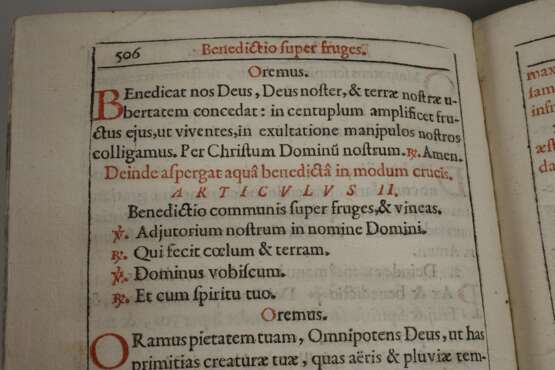 506 Benedictio super fruges.
Oremus.
BEnedicat nos Deus, Deus noster, & terræ nostræ u-
bertatem concedat: in centuplum amplificet fru-
ctus ejus, ut viventes, in exultatione manipulos nostros
colligamus. Per Christum Dominũ nostrum. ℟. Amen.
Deinde aspergat aquâ benedictâ in modum crucis.
ARTICVLVS II.
Benedictio communis super fruges, & vineas.
℣. Adjutorium nostrum in nomine Domini.
℟. Qui fecit cœlum & terram.
℣. Dominus vobiscum.
℟. Et cum spiritu tuo.
Oremus.
ORamus pietatem tuam, Omnipotens Deus, ut has
primitias creaturæ tuæ, quas aëris & pluviæ tem-
max